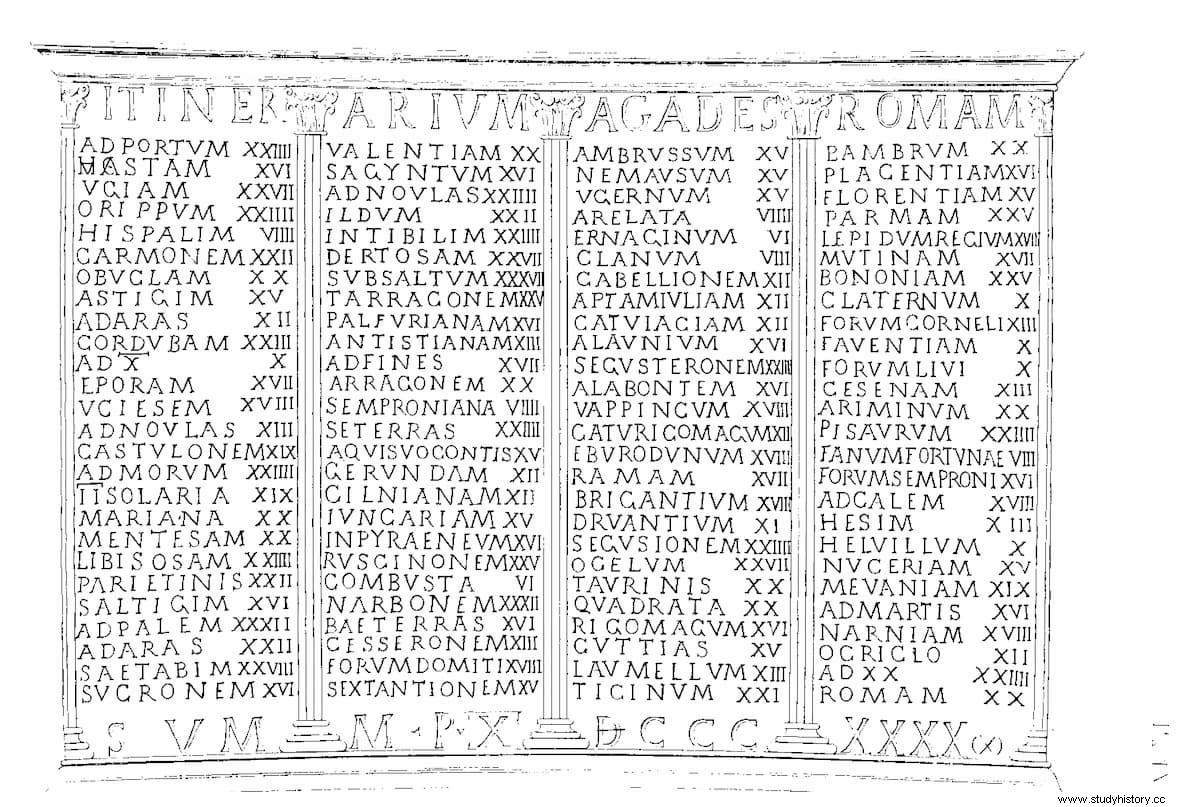 ITINERARIVM AGADES ROMAM
ADPORTVM XXIIII
HASTAM XVI
VGIAM XXVII
ORIPPVM XXIIII
HISPALIM VIIII
CARMONEM XXII
OBVCLAM XX
ASTIGIM XV
ADARAS XII
CORDVBAM XXIII
AD X̅ X
EPORAM XVII
VCIESEM XVIII
ADNOVLAS XIII
CASTVLONEM XIX
ADMORVM XXIIII
I̅I̅SOLARIA XIX
MARIANA XX
MENTESAM XX
LIBISOSAM XXIIII
PARIETINIS XXII
SALTIGIM XVI
ADPALEM XXXII
ADARAS XXII
SAETABIM XXVIII
SVCRONEM XVI
VALENTIAM XX
SAGYNTVM XVI
ADNOVLAS XXIIII
ILDVM XXII
INTIBILIM XXIIII
DERTOSAM XXVII
SVBSALTVM XXXVII
TARRAGONEM XXV
PALFVRIANAM XVI
ANTISTIANAM XIII
ADFINES XVII
ARRAGONEM XX
SEMPRONIANA VIIII
SETERRAS XXIIII
AQVISVOCONTIS XV
GERVNDAM XII
CILNIANAM XII
IVNCARIAM XV
INPYRAENEVM XVI
RVSCINONEM XXV
COMBVSTA VI
NARBONEM XXXII
BAETERRAS XVI
CESSERONEM XIII
FORVMDOMITI XVIII
SEXTANTIONEM XV
AMBRVSSVM XV
NEMAVSVM XV
VGERNVM XV
ARELATA VIIII
ERNAGINVM VI
GLANVM VIII
CABELLIONEM XII
APTAMIVLIAM XII
CATVIACIAM XII
ALAVNIVM XVI
SEGVSTERONEM XXIII
ALABONTEM XVI
VAPPINCVM XVIII
CATVRIGOMAGVM XII
EBVRODVNVM XVIII
RAMAM XVII
BRIGANTIVM XVII
DRVANTIVM XI
SEGVSIONEM XXIIII
OCELVM XXVII
TAVRINIS XX
QVADRATA XX
RIGOMAGVM XVI
CVTTIAS XV
LAVMELLVM XIII
TICINVM XXI
BAMBRVM XX
PLACENTIAM XVI
FLORENTIAM XV
PARMAM XXV
LEPIDVMREGIVM XVIII
MVTINAM XVII
BONONIAM XXV
CLATERNVM X
FORVMCORNELI XIIII
FAVENTIAM X
FORVMLIVI X
CESENAM XIII
ARIMINVM XX
PISAVRVM XXIIII
FANVMFORTVNAE VIII
FORVMSEMPRONI XVI
ADCALEM XVIII
HESIM XIII
HELVILLVM X
NVCERIAM XV
MEVANIAM XIX
ADMARTIS XVI
NARNIAM XVIII
OCRICLO XII
ADXX XXIIII
ROMAM XX
SVM M·P·X̅ DCCCC XXXX(X)
www.studyhistory.cc